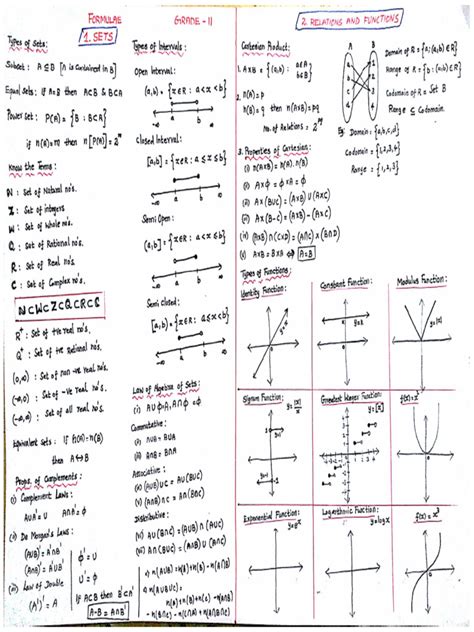 FORMULAE GRADE - 11
1. SETS
Types of Sets:
Subset: A ⊆ B [A is contained in B]
Equal sets: if A=B then A⊂B & B⊂A
Power set: P(A) = {B : B⊂A}
if n(A)=m then n[P(A)] = 2^m
Know the Terms:
N : Set of Natural no's.
Z : Set of integers
W : Set of Whole no's.
Q : Set of Rational no's.
R : Set of Real no's.
C : Set of Complex no's.
N⊂W⊂Z⊂Q⊂R⊂C
R⁺ : Set of +ve real no's.
Q⁺ : Set of +ve Rational no's.
Set of non -ve real no's.
Set of -ve real no's.
(-∞,∞) : Set of all real no's.
Equivalent sets: If n(A)=n(B)
then A↔B
Props. of Complements:
(i) Complement Laws:
A∪A' = U A∩A' = ϕ
(ii) De Morgan's Laws:
(A∪B)' = A'∩B' ϕ' = U
(A∩B)' = A'∪B' U' = ϕ
(iii) Law of Double
(A')' = A
If A⊂B then B'⊂A'
A-B = A∩B'
Types of Intervals:
Open Interval:
(a,b) = {x∈R : a<x<b}
-∞ a b ∞
Closed Interval:
[a,b] = {x∈R : a≤x≤b}
-∞ a b ∞
Semi Open:
(a,b] = {x∈R : a<x≤b}
-∞ a b ∞
Semi closed:
[a,b) = {x∈R : a≤x<b}
-∞ a b ∞
Law of Algebra of Sets:
(i) A∪ϕ=A, A∩ϕ=ϕ
Commutative:
A∪B = B∪A
A∩B = B∩A
Associative:
(A∪B)∪C = A∪(B∪C)
(A∩B)∩C = A∩(B∩C)
Distributive:
A∪(B∩C) = (A∪B)∩(A∪C)
A∩(B∪C) = (A∩B)∪(A∩C)
n(A∪B) = n(A)+n(B)-n(A∩B)
n(A∪B∪C) =
n(A)+n(B)+n(C)-n(A∩B)
-n(B∩C)-n(C∩A)+n(A∩B∩C)
2. RELATIONS AND FUNCTIONS
Cartesian Product:
1. A×B = {(a,b) : a∈A b∈B}
2. n(A)=p
n(B)=q then n(A×B)=pq
No. of Relations = 2^pq
A B
Domain of R = {a: (a,b)∈R}
Range of R = {b : (a,b)∈R}
Codomain of R = Set B
Range ⊆ Codomain.
Eg: Domain = {a,b,c,d}
Codomain = {1,2,3,4}
Range = {1,2,3}
3. Properties of Cartesian:
(i) n(A×B) = n(A).n(B)
(ii) A×ϕ = ϕ×A = ϕ
A×(B∪C) = (A×B)∪(A×C)
A×(B-C) = (A×B)-(A×C)
(A×B)∩(C×D) = (A∩C)×(B∩D)
(v) A×B = B×A ⇔ A=B
Types of Functions:
Identity Function:
Constant Function:
Modulus Function:
Signum Function:
Greatest Integer Function:
y=[x]
f(x)=x²
Exponential Function:
Logarithmic Function:
y=log x
f(x)=x³